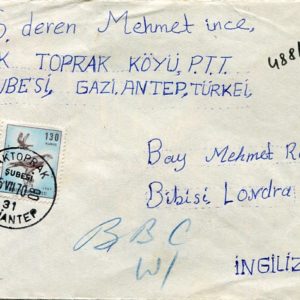 G. deren Mehmet ince,
K TOPRAK KÖYÜ, P.T.T
UBESİ, GAZİ,ANTEP,TÜRKEİ,
488
130
KTOPRAK
ŞUBESİ
VII 70
31
ANTEP
Bay Mehmet R
Bibisi Lovdra
BBC
W1
İNGİLİZ